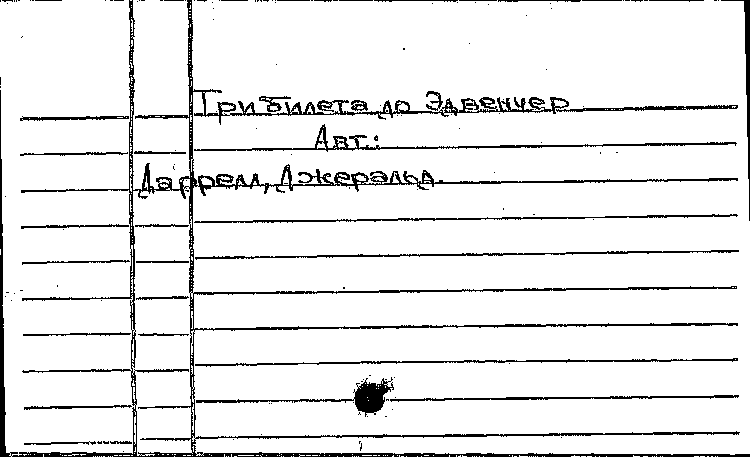 Три билета до Эдвенчер
Авт.:
Даррелл, Джеральд.